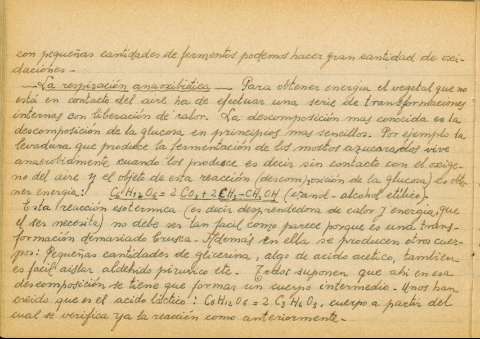 con pequeñas cantidades de fermentos podemos hacer gran cantidad de oxi-
daciones.-
La respiración anaoxibiótica — Para obtener energia el vegetal que no
está en contacto del aire ha de efectuar una serie de transformaciones
internas con liberación de calor. La descomposición mas conocida es la
descomposición de la glucosa en principios mas sencillos. Por ejemplo la
levadura que produce la fermentación de los mostos azucarados vive
anaerobiamente, cuando los produce es decir sin contacto con el oxige-
no del aire y el objeto de esta reacción (descomposición de la glucosa) es obte-
ner energia: C6H12O6 = 2 CO2 + 2 CH3-CH2OH (etanol-alcohol etílico).
Esta reacción exotermica (es decir desprendedora de calor y energia, que
el ser necesita) no debe ser tan facil como parece porque es una trans-
formación demasiado brusca. Además en ella se producen otros cuer-
pos: Pequeñas cantidades de glicerina, algo de acido acetico, tambien
es facil aislar aldehido pirúvico etc. Todos suponen que ahi en esa
descomposición se tiene que formar un cuerpo intermedio. Unos han
creido que es el acido láctico: C6H12O6 = 2 C3H6O3, cuerpo a partir del
cual se verifica ya la reacción como anteriormente.-